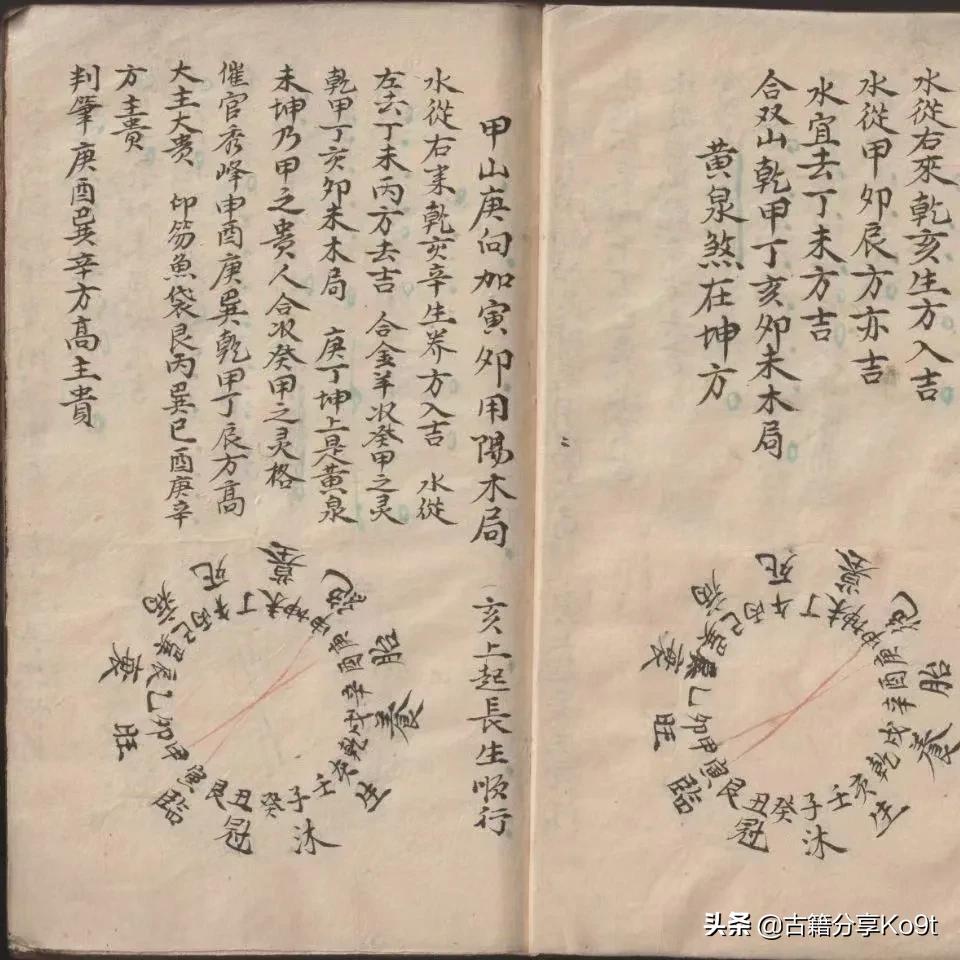 水從右來乾亥生方入吉
水從甲卯辰方亦吉
水宜去丁未方吉
合双山乾甲丁亥卯未木局
黄泉煞在坤方
甲山庚向加寅卯用陽木局 亥上起長生順行
水從右来乾亥辛生养方入吉 水從
左去丁未丙方去吉 合金羊收癸甲之灵
乾甲丁亥卯未木局 庚丁坤上是黄泉
未坤乃甲之贵人合收癸甲之灵格
催官秀峰申酉庚巽乾甲丁辰方高
大主大贵 印笏魚袋艮丙巽巳酉庚辛
方主贵
判筆庚酉巽辛方高主貴
生 沐 冠 臨 旺 衰 病 死 墓 胎 養
壬 子 癸 丑 艮 寅 甲 卯 乙 辰 巽 巳 丙 午 丁 未 坤 申 庚 酉 辛 戌 乾 亥
生 沐 冠 臨 旺 衰 病 死 墓 胎 養
壬 子 癸 丑 艮 寅 甲 卯 乙 辰 巽 巳 丙 午 丁 未 坤 申 庚 酉 辛 戌 乾 亥
头条 @古籍分享Ko9t